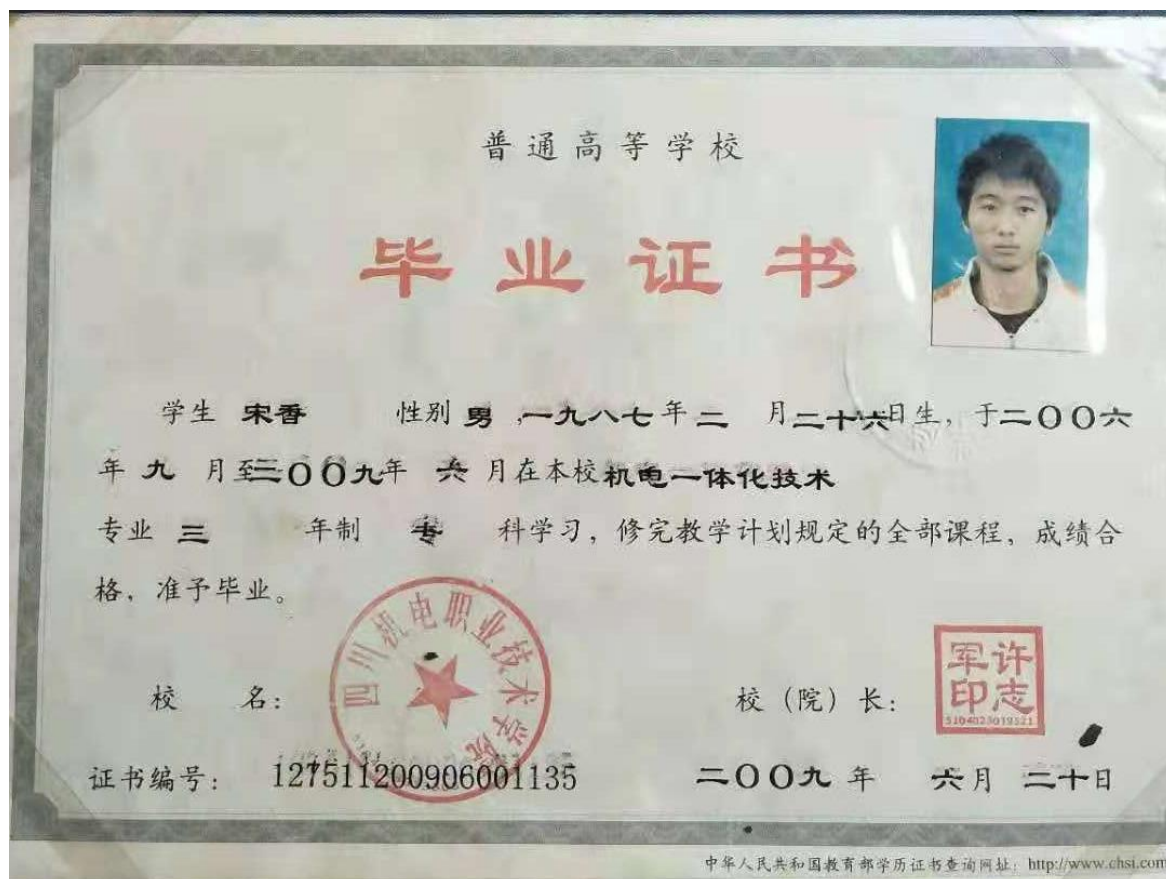 普通高等学校
毕业证书
学生 宋香 性别 男 ,一九八七年 二 月二十六日生，于二〇〇六
年 九 月至二〇〇九年 六 月在本校机电一体化技术
专业 三 年制 专 科学习，修完教学计划规定的全部课程，成绩合
格，准予毕业。
四川机电职业技术学院
军许
印志
5104023019521
校 名： 校（院）长：
证书编号： 127511200906001135 二〇〇九 年 六月 二十日
中华人民共和国教育部学历证书查询网址：http://www.chsi.com